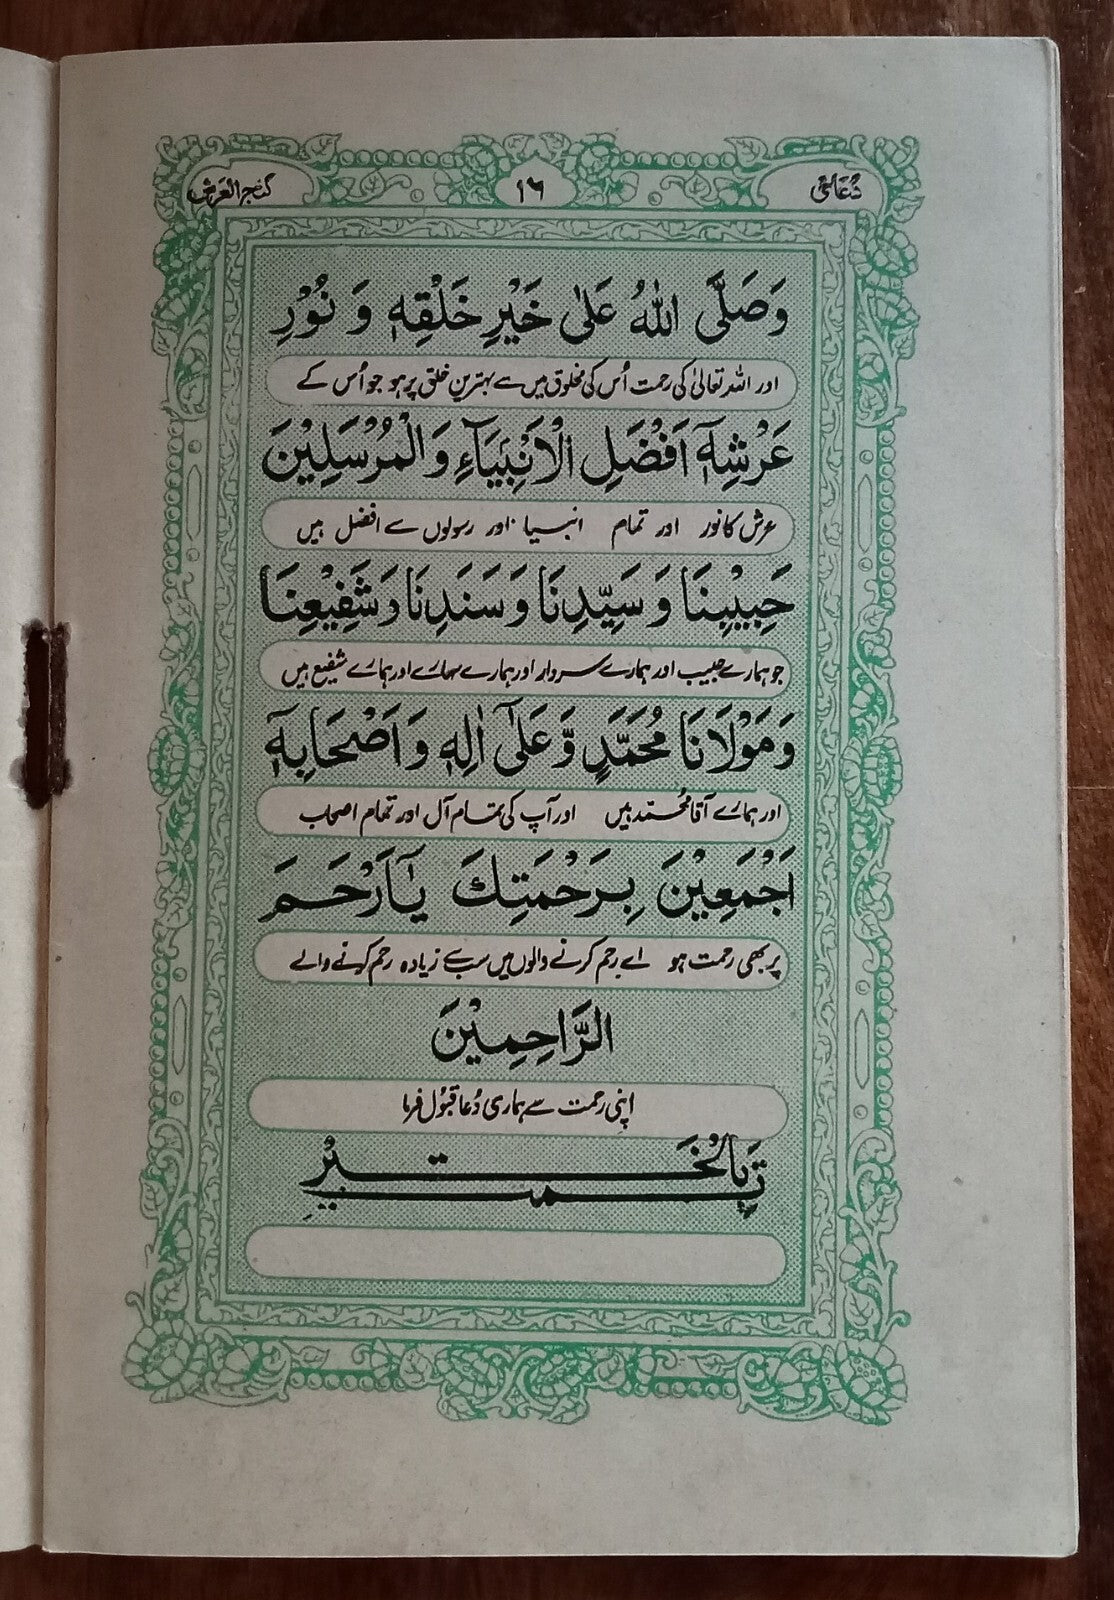 دُعائے ۱۶ گنج العرش
وَصَلَّى اللهُ عَلٰى خَيْرِ خَلْقِهٖ وَ نُوْرِ
اور اللہ تعالیٰ کی رحمت اُس کی مخلوق میں سے بہترین خلق پر ہو جو اُس کے
عَرْشِهٖٓ اَفْضَلِ الْاَنْبِيَآءِ وَالْمُرْسَلِيْنَ
عرش کا نور اور تمام انبیا اور رسولوں سے افضل ہیں
حَبِيْبِنَا وَ سَيِّدِنَا وَ سَنَدِنَا وَ شَفِيْعِنَا
جو ہمارے حبیب اور ہمارے سردار اور ہمارے سہارے اور ہمارے شفیع ہیں
وَ مَوْلَانَا مُحَمَّدٍ وَّ عَلٰٓى اٰلِهٖ وَ اَصْحَابِهٖٓ
اور ہمارے آقا محمّد ہیں اور آپ کی تمام آل اور تمام اصحاب
اَجْمَعِيْنَ بِرَحْمَتِكَ يَآ اَرْحَمَ
پر بھی رحمت ہو اے رحم کرنے والوں میں سب سے زیادہ رحم کرنے والے
الرَّاحِمِيْنَ
اپنی رحمت سے ہماری دُعا قبُول فرما
تَمَّتْ بِالْخَيْرِ